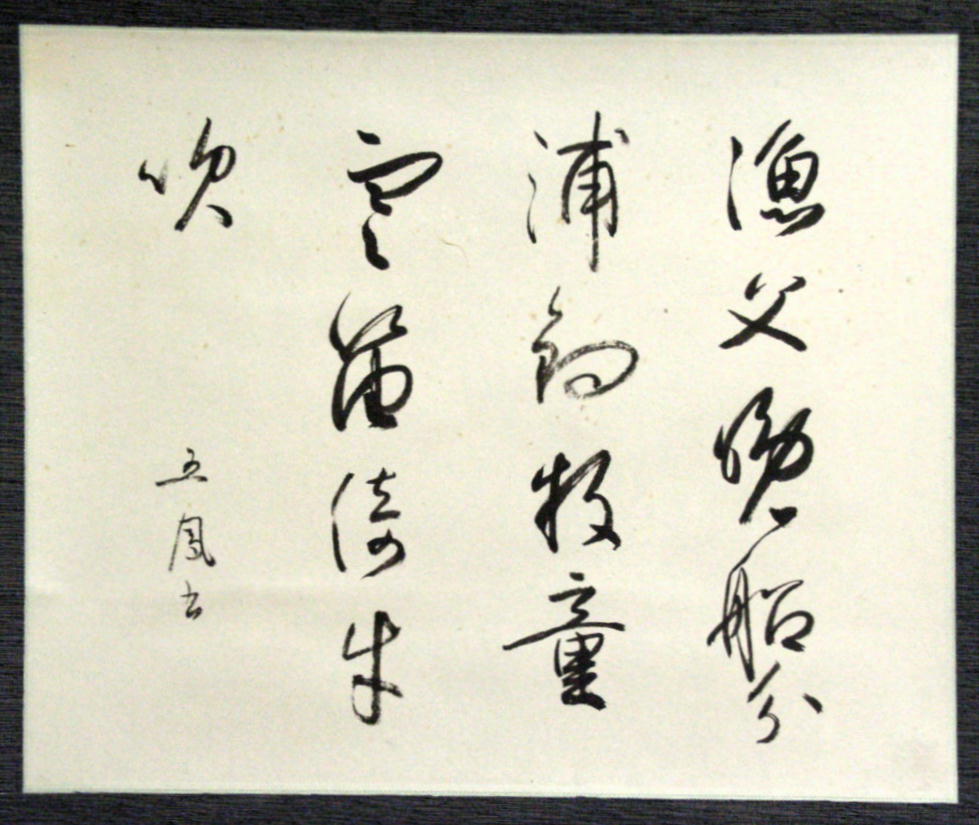 漁父晚船分
浦釣牧童
寒笛倚牛
吹
五鳳書